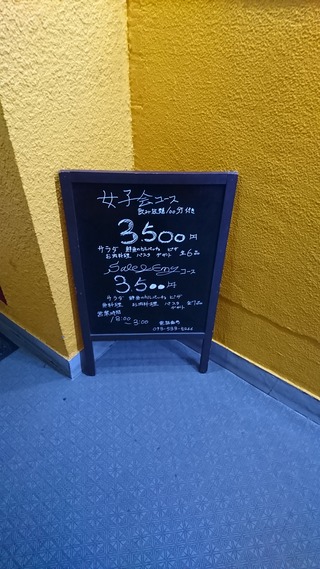 女子会コース
飲み放題100分付き
3.500円
サラダ 鮮魚のカルパッチョ ピザ
お肉料理 パスタ デザート 全6品
コース
3.500円
サラダ 鮮魚のカルパッチョ ピザ
魚料理 お肉料理 パスタ 全7品
デザート
営業時間
18:00 3:00
電話番号